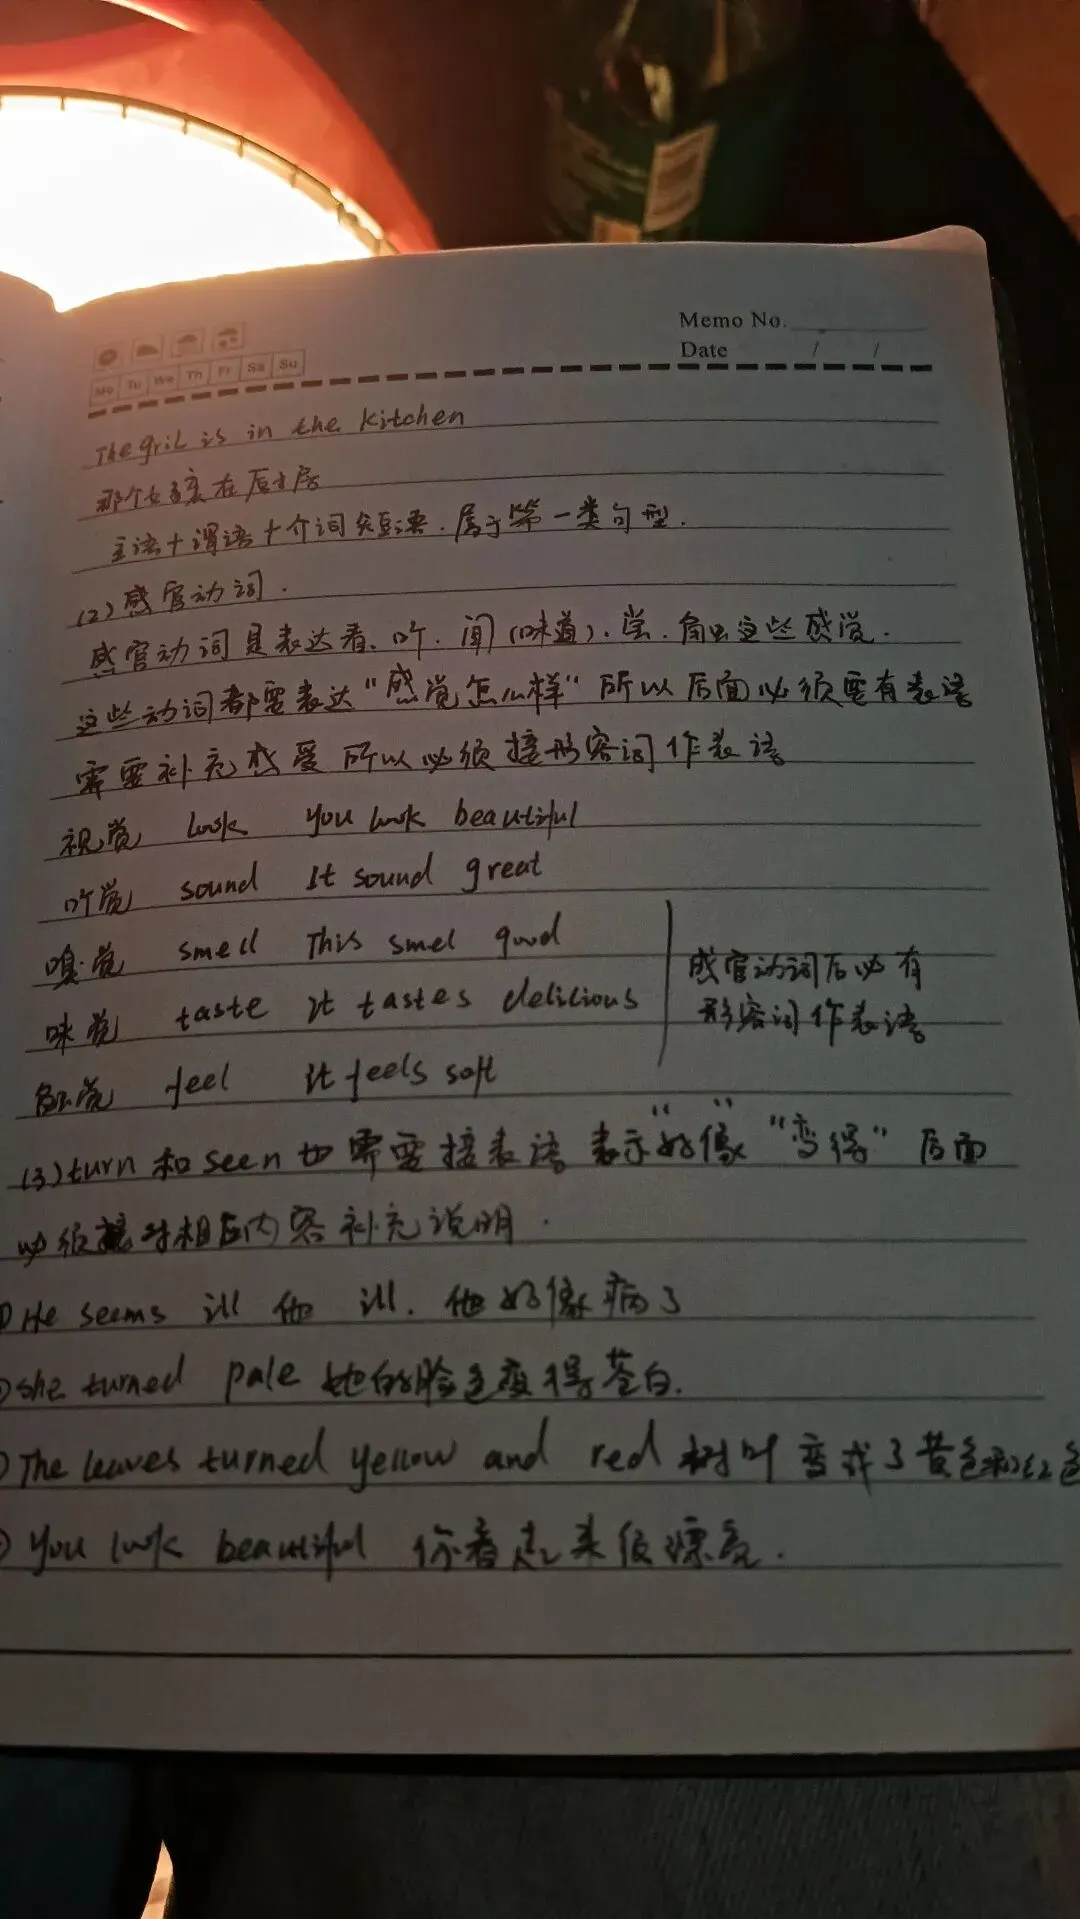 Memo No.
Date / /
Mo Tu We Th Fr Sa Su
The gril is in the kitchen
那个女孩在厨房
主语+谓语+介词短语.属于第一类句型.
(2)感官动词.
感官动词是表达看、听、闻(味道)、尝、触这些感觉.
这些动词都需表达"感觉怎么样"所以后面必须要有表语
需要补充感受所以必须接形容词作表语
视觉 look you look beautiful
听觉 sound It sound great
嗅觉 smell This smel good
味觉 taste it tastes delicious
触觉 feel it feels soft
感官动词后必有
形容词作表语
(3)turn和seen也需要接表语表示"好像""变得"后面
必须接对相应内容补充说明.
He seems ill 他 ill. 他好像病了
she turned pale 她的脸色变得苍白.
The leaves turned yellow and red 树叶变成了黄色和红色
you look beautiful 你看起来很漂亮.